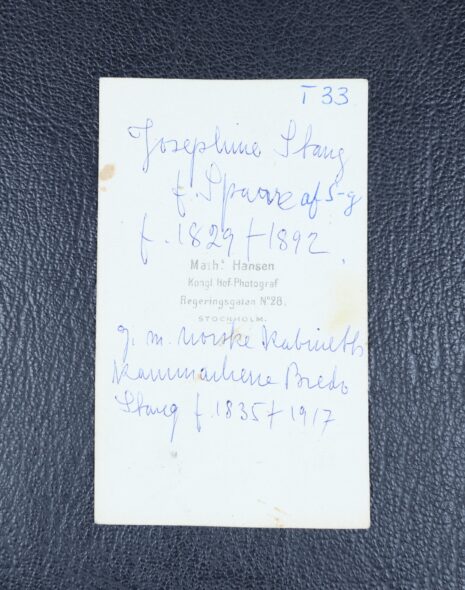 T 33
Josephine Stang
f. Sparre af S-g
f. 1829 † 1892.
Math.s Hansen
Kongl. Hof-Photograf
Regeringsgatan No 28.
STOCKHOLM.
g. m. norske Kabinetts
Kammarherre Bredo
Stang f. 1835 † 1917